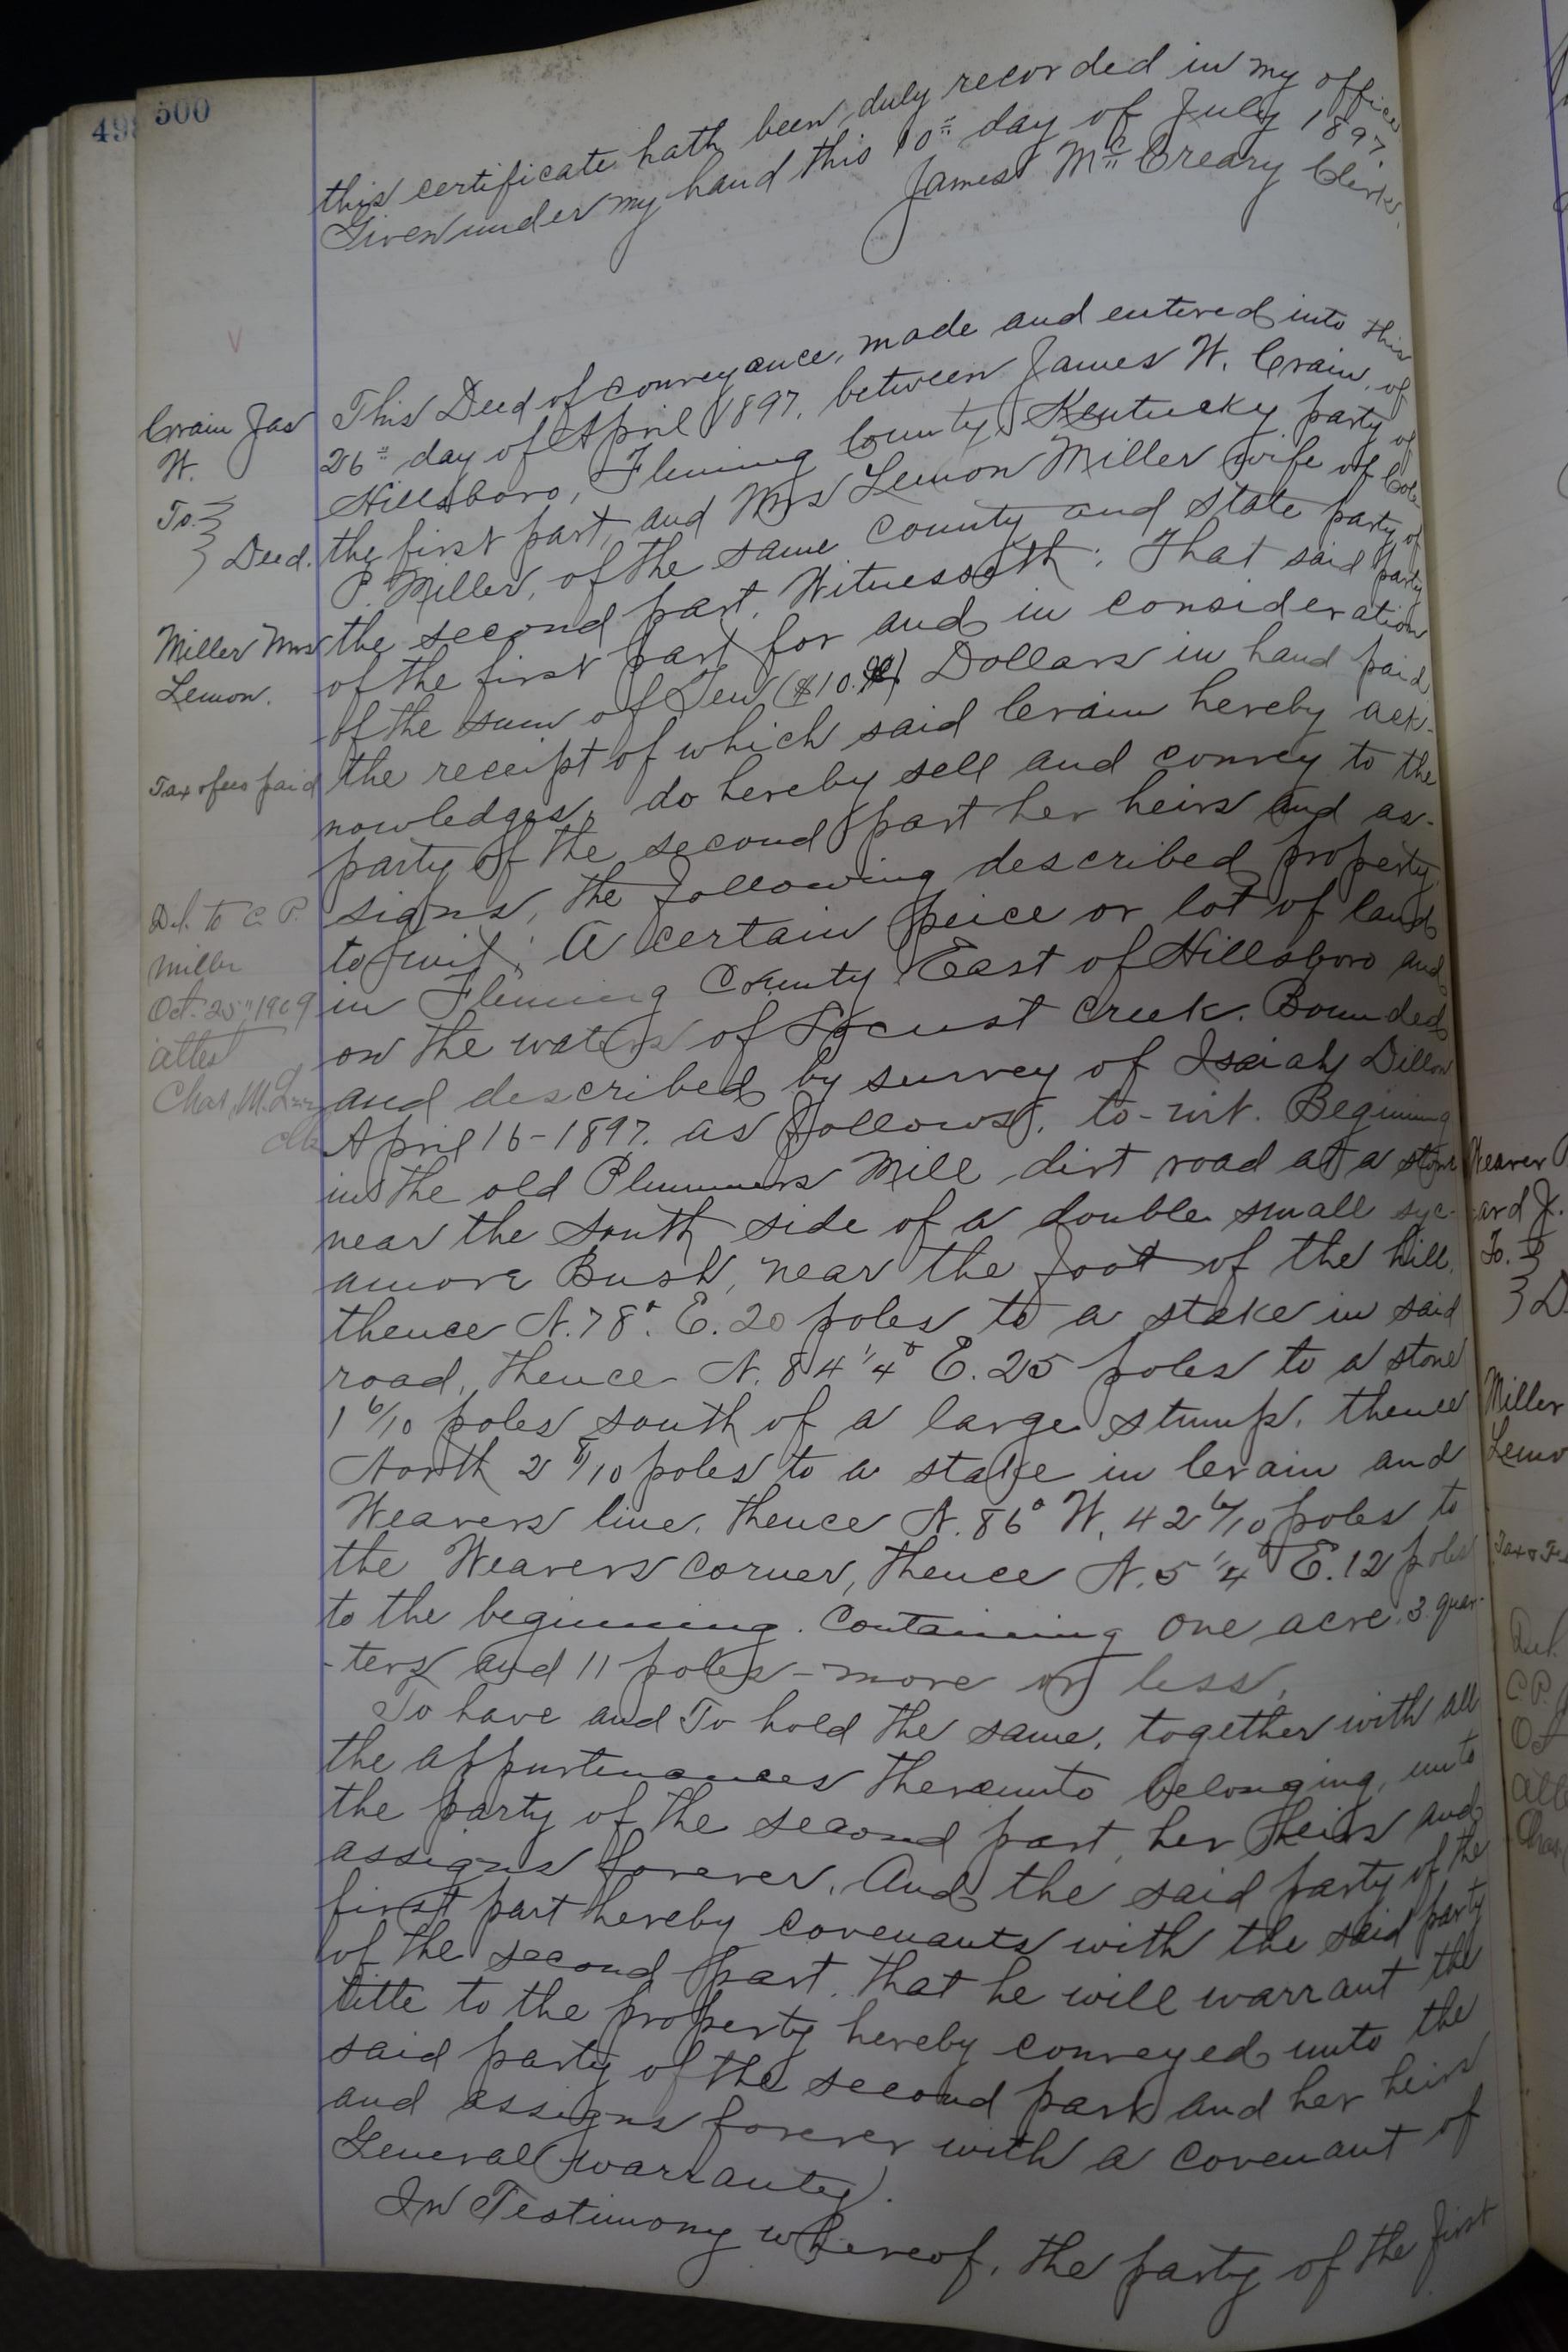 499
500
this certificate hath been duly recorded in my office
Given under my hand this 10th day of July 1897.
James McCreary Clerk.
Crain Jas
W.
To.
Deed.
Miller Mrs
Lemon.
Tax & fees paid
Del. to C. P.
Miller
Oct. 25" 1909
attest
Chas. M.
Clk
This Deed of conveyance, made and entered into this
26th day of April 1897. between James W. Crain, of
Hillsboro, Fleming County, Kentucky party of
the first part, and Mrs Lemon Miller wife of Cole
P. Miller, of the same county and state party of
the second part. Witnesseth: That said party
of the first part for and in consideration
of the sum of Ten ($10.00) Dollars in hand paid
the receipt of which said Crain hereby ack-
nowledges, do hereby sell and convey to the
party of the second part her heirs and as-
signs, the following described property
to wit: A certain peice or lot of land
in Fleming County East of Hillsboro and
on the waters of Locust Creek. Bounded
and described by survey of Isaiah Dillon
April 16-1897. as follows, to-wit. Begining
in the old Plummers Mill dirt road at a stone
near the south side of a double small syc-
amore Bush, near the foot of the hill,
thence N. 78° E. 20 poles to a stake in said
road, thence N. 84 1/4° E. 25 poles to a stone
1 6/10 poles south of a large stump, thence
North 2 8/10 poles to a stake in Crain and
Weavers line, thence N. 86° W. 42 6/10 poles to
the Weavers corner, thence N. 5 1/4° E. 12 poles
to the beginning. Containing one acre 3 quar-
-ters and 11 poles - more or less,
To have and To hold the same, together with all
the appurtenances thereunto belonging, unto
the party of the second part, her heirs and
assigns forever. And the said party of the
first part hereby covenants with the said party
of the second part. that he will warrant the
title to the property hereby conveyed unto the
said party of the second part and her heirs
and assigns forever with a covenant of
General warranty.
In Testimony whereof, the party of the first
Weaver
ard J.
To.
D
Miller
Lemo
Tax & Fe
Del.
C.P.
Oct
atte
Chas.